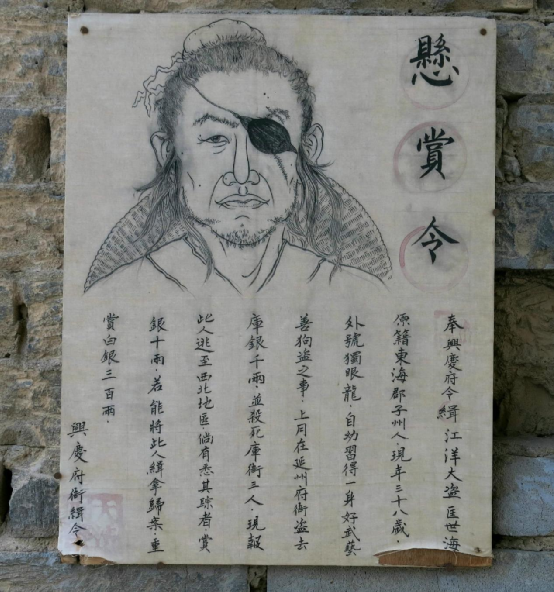 懸賞令
奉興慶府令緝江洋大盜匡世海
原籍東海郡子州人.現年三十八歲.
外號獨眼龍.自幼習得一身好武藝
善狗盜之事.上月在延州府衙盜去
庫銀千兩.並殺死庫衛三人.現報
此人逃至西北地區.倘有悉其踪者賞
銀十兩.若能將此人緝拿歸案.重
賞白銀三百兩.
興慶府衙緝令